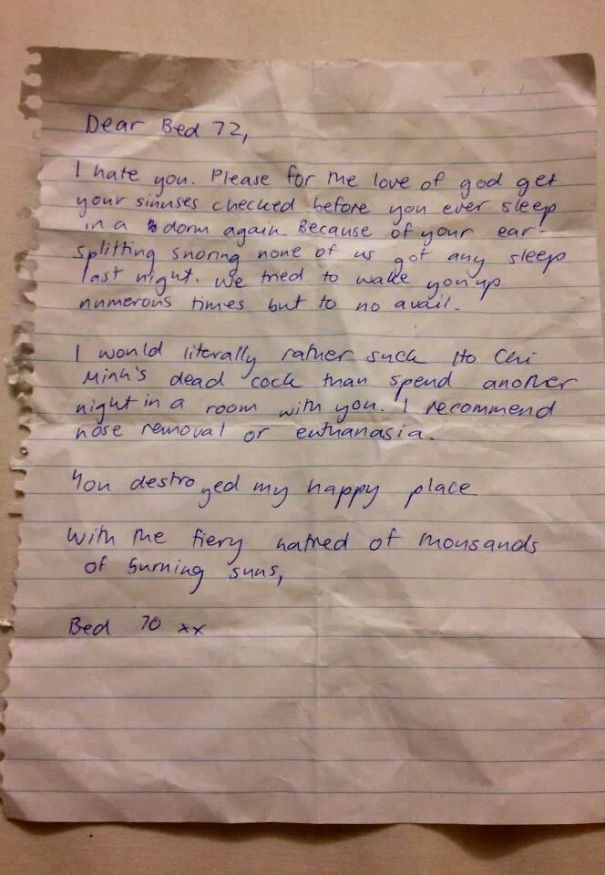 Dear Bed 72,
I hate you. Please for the love of god get
your sinuses checked before you ever sleep
in a dorm again. Because of your ear-
splitting snoring none of us got any sleep
last night. We tried to wake you up
numerous times but to no avail.
I would literally rather suck Ho Chi
Minh's dead cock than spend another
night in a room with you. I recommend
nose removal or euthanasia.
You destroyed my happy place
With the fiery hatred of thousands
of burning suns,
Bed 70 xx